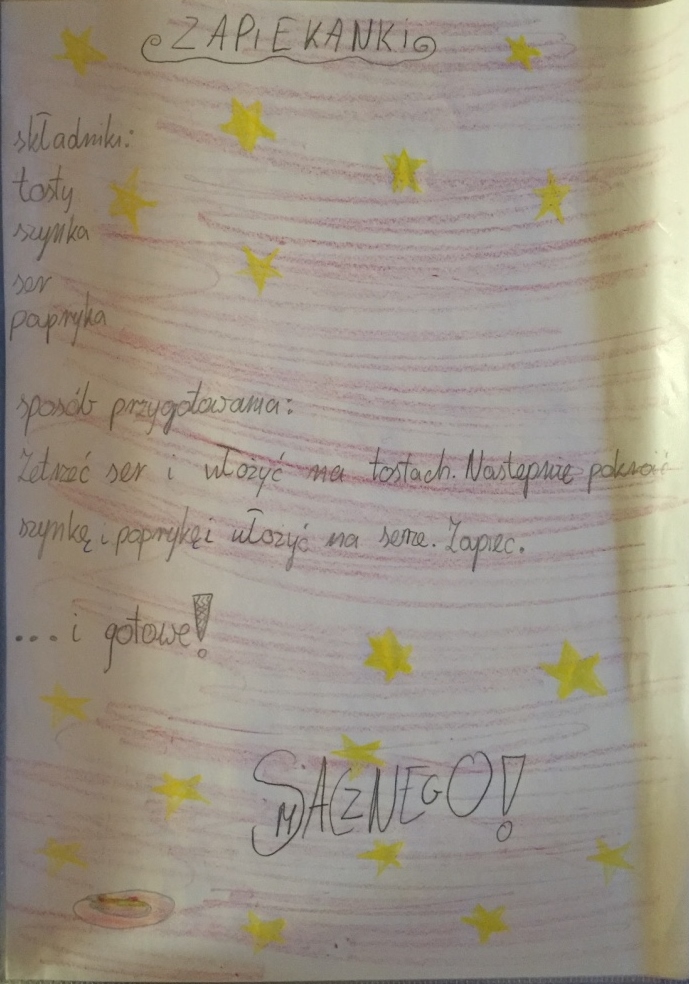 ZAPIEKANKI
składniki:
tosty
szynka
ser
papryka
sposób przygotowania:
Zetrzeć ser i ułożyć na tostach. Następnie pokroić
szynkę i paprykę i ułożyć na serze. Zapiec.
... i gotowe!
SMACZNEGO!